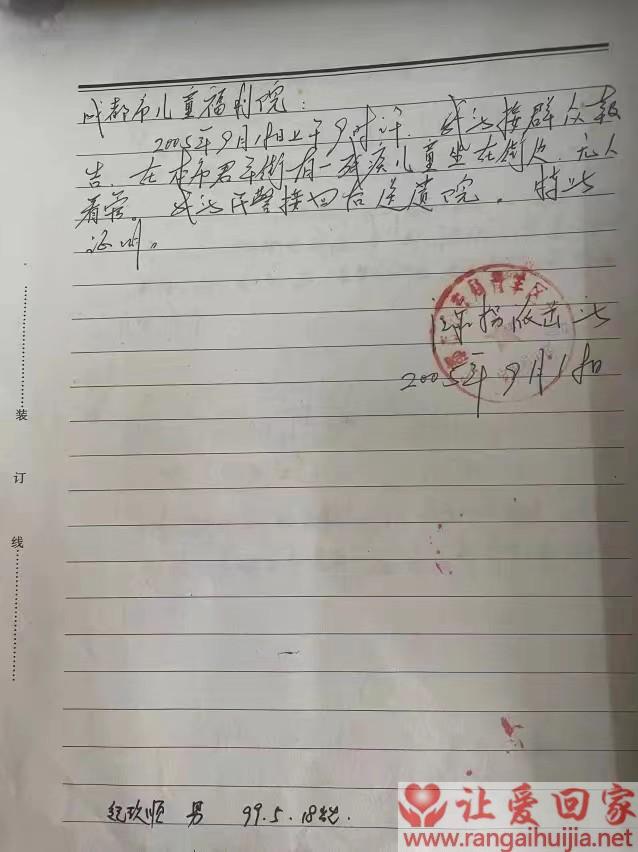 成都市儿童福利院：
2005年9月1日上午9时许，我所接群众报
告，在本市君平街有一残疾儿童坐在街边，无人
看管。我所民警接回后送贵院。特此
证明。
派出所
2005年9月1日
装
订
线
纪玖顺 男 99.5.18
让爱回家
www.rangaihuijia.net